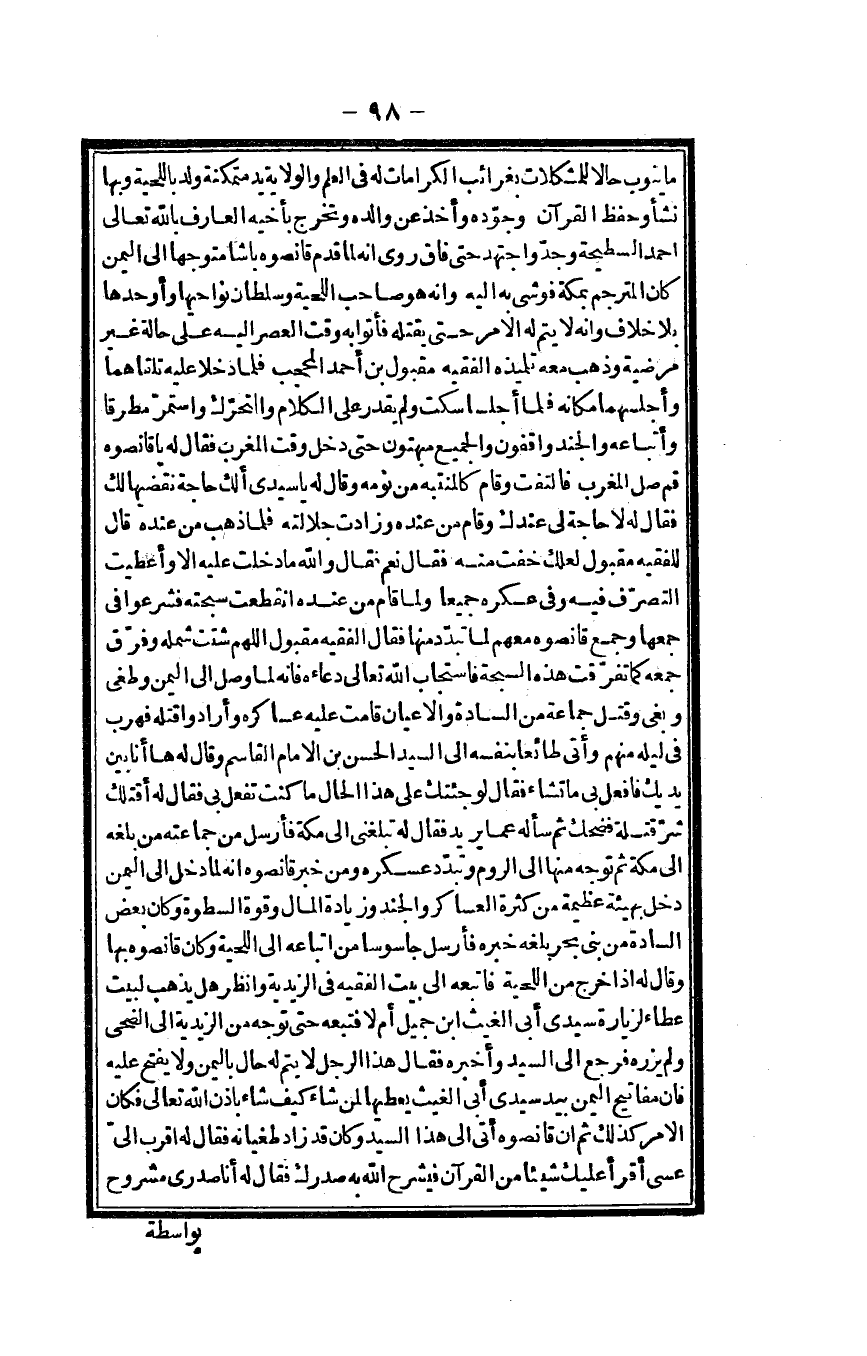 - ٩٨ -
ما ينوب حالا للمشكلات بغرائب الكرامات له فى العلم والولاية يد متمكنة ولد باللحية وبها
نشأ وحفظ القرآن وجوّده وأخذ عن والده وتخرج بأخيه العارف بالله تعالى
احمد السطيحة وجدّ واجتهد حتى فاق روى انه لما قدم قانصوه باشا متوجها الى اليمن
كان المترجم بمكة فوشى به اليه وانه هو صاحب اللحية وسلطان نواحيها وأوحدها
بلا خلاف وانه لا يتم له الامر حتى يقتله فأتوا به وقت العصر اليه على حالة غير
مرضية وذهب معه تلميذه الفقيه مقبول بن أحمد المحجب فلما دخلا عليه تلقاهما
وأجلسهما مكانه فلما أجلسا سكت ولم يقدر على الكلام والتحرّك واستمرّ مطرقا
وأتباعه والجند واقفون والجميع مبهتون حتى دخل وقت المغرب فقال له يا قانصوه
قم صل المغرب فالتفت وقام كالمنتبه من نومه وقال له يا سيدى ألك حاجة نقضها لك
فقال له لا حاجة لى عندك وقام من عنده وزادت جلالته فلما ذهب من عنده قال
للفقيه مقبول لعلك خفت منه فقال نعم فقال والله ما دخلت عليه الا وأعطيت
التصرّف فيه وفى عسكره جميعا ولما قام من عنده انقطعت سبحته فشرعوا فى
جمعها وجمع قانصوه معهم لما تبدّد منها فقال الفقيه مقبول اللهم شتت شمله وفرّق
جمعه كما تفرّقت هذه السبحة فاستجاب الله تعالى دعاءه فانه لما وصل الى اليمن وطغى
وبغى وقتل جماعة من السادة والاعيان قامت عليه عساكره وأرادوا قتله فهرب
فى ليله منهم وأتى طائعا بنفسه الى السيد الحسن بن الامام القاسم وقال له ها أنا بين
يديك فافعل بى ما تشاء فقال لو جئتك على هذا الحال ما كنت تفعل بى فقال له أقتلك
شرّ قتلة فضحك ثم سأله عما يريد فقال له تبلغنى الى مكة فأرسل من جماعته من بلغه
الى مكة ثم توجه منها الى الروم وتبدّد عسكره ومن خبر قانصوه انه لما دخل الى اليمن
دخل بهيئة عظيمة من كثرة العساكر والجند وزيادة المال وقوة السطوة وكان بعض
السادة من بنى بحر بلغه خبره فأرسل جاسوسا من اتباعه الى اللحية وكان قانصوه بها
وقال له اذا خرج من اللحية فاتبعه الى بيت الفقيه فى الزيدية وانظر هل يذهب لبيت
عطاء لزيارة سيدى أبى الغيث ابن جميل أم لا فتبعه حتى توجه من الزيدية الى الضحى
ولم يزره فرجع الى السيد وأخبره فقال هذا الرجل لا يتم له حال باليمن ولا يفتح عليه
فان مفاتيح اليمن بيد سيدى أبى الغيث يعطيها لمن شاء كيف شاء باذن الله تعالى فكان
الامر كذلك ثم ان قانصوه أتى الى هذا السيد وكان قد زاد طغيانه فقال له اقرب الىّ
عسى أقرأ عليك شيئا من القرآن فيشرح الله به صدرك فقال له أنا صدرى مشروح
بواسطة